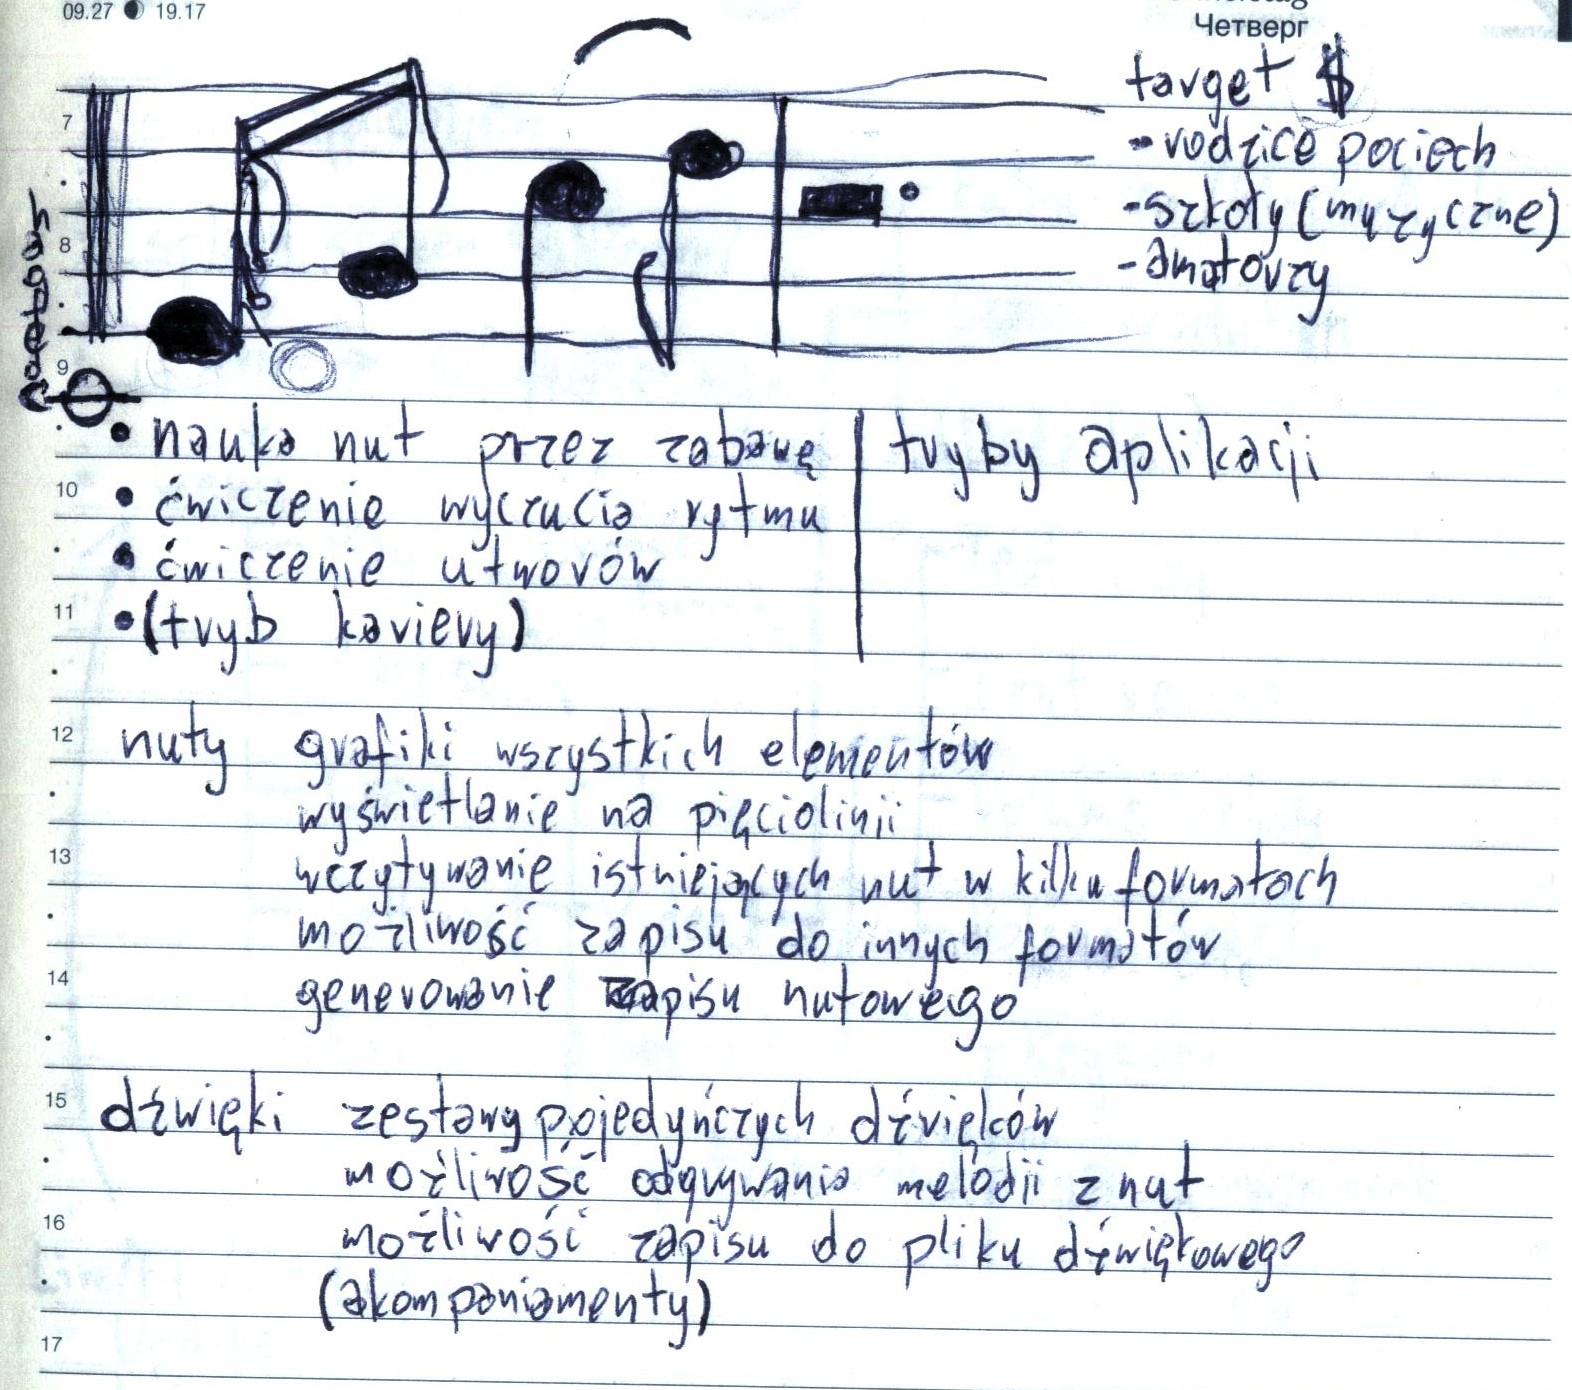 09.27 19.17
Четверг
target $
- rodzice pociech
- szkoły (muzyczne)
- amatorzy
7
8
9
• nauka nut przez zabawę
tryby aplikacji
10
• ćwiczenie wyczucia rytmu
• ćwiczenie utworów
11
• (tryb kariery)
12
nuty grafiki wszystkich elementów
wyświetlanie na pięciolinii
13
wczytywanie istniejących nut w kilku formatach
możliwość zapisu do innych formatów
14
generowanie zapisu nutowego
15
dźwięki zestawy pojedyńczych dźwięków
możliwość odgrywania melodii z nut
16
możliwość zapisu do pliku dźwiękowego
(akompaniamenty)
17